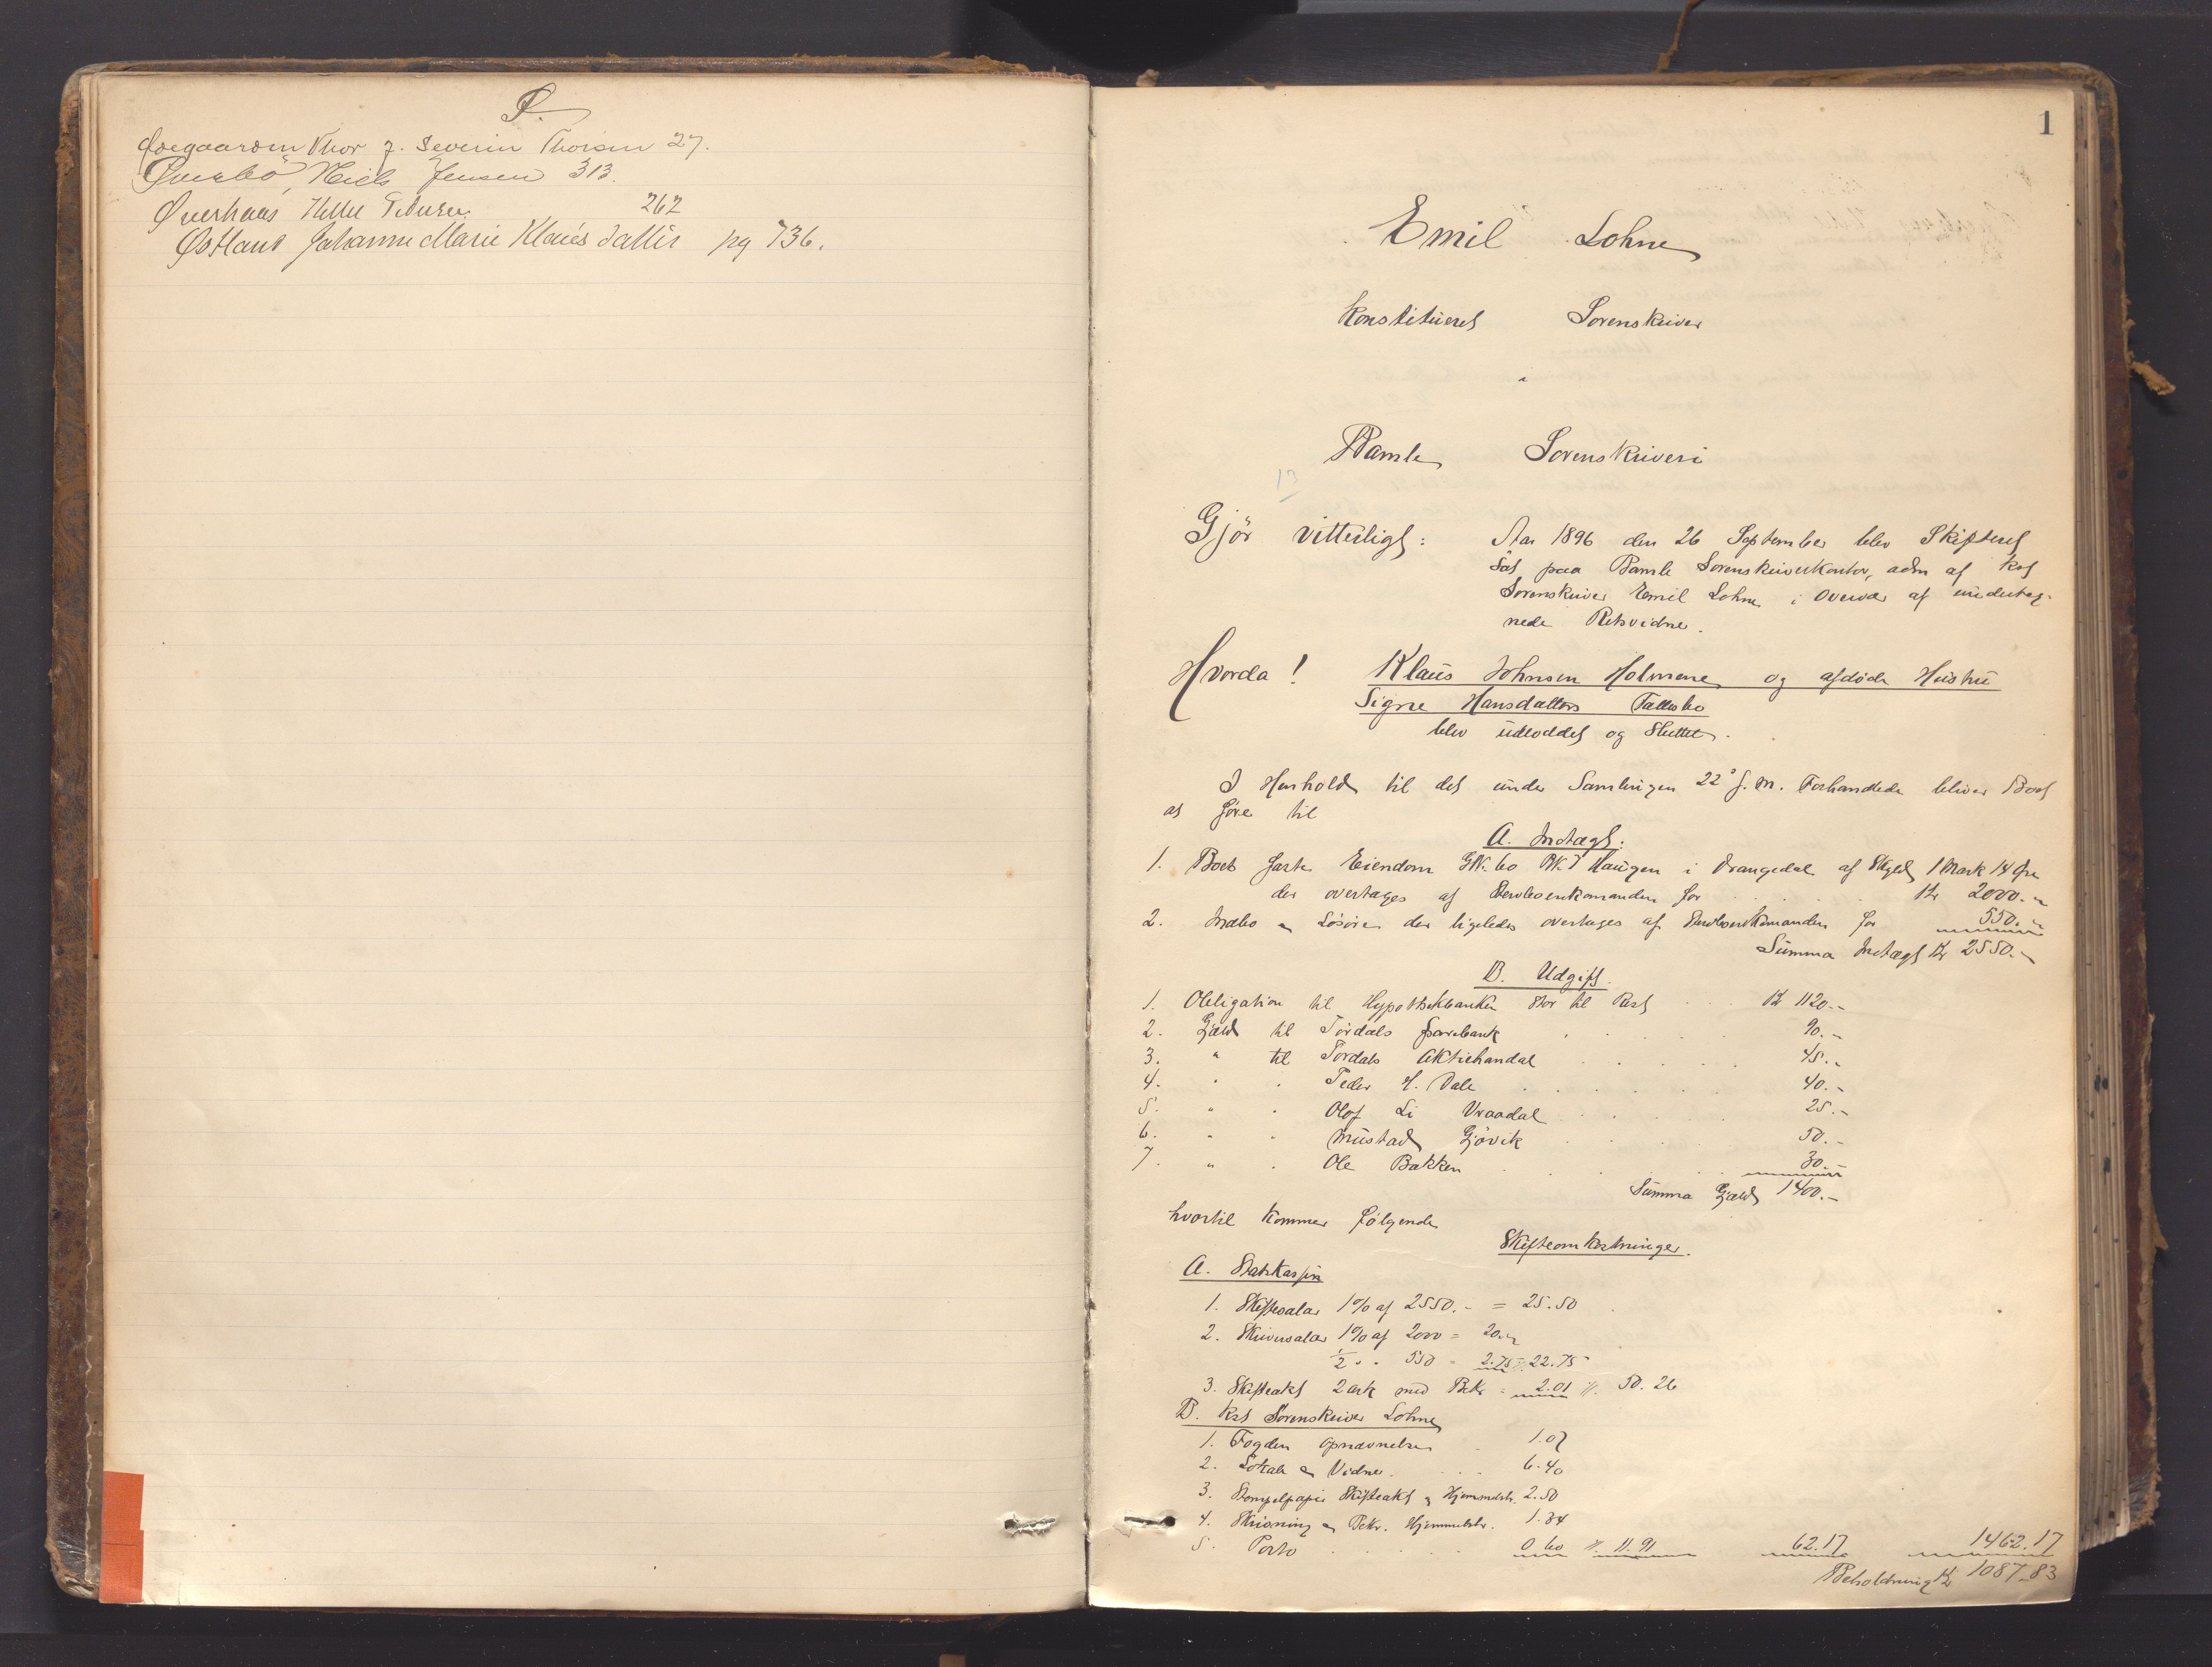 Ø.
Ødegaarden Thor f. Severin Thorsen 27.
Øverbö, Niels Jensen 313.
Øverhaas Kittel 262
Østland Johanne Marie Klausdatter pg 736.
1
Emil Lohne
Konstitueret Sorenskriver
i
Bamle Sorenskriveri
13
Gjör vitterligt: Aar 1896 den 26 September blev Skifteret
sat paa Bamle Sorenskriverkontor, adm af kst
Sorenskriver Emil Lohne i Overvær af underteg-
nede Retsvidner.
Hvorda! Klaus Johnsen Holmene og afdøde Hustru
Signe Hansdatters Fællesbo
blev udloddet og sluttet.
I Henhold til det under Samlingen 22 f. M. Forhandlede bliver Boet
at gjöre til
A. Indtægt:
1. Boets faste Eiendom GN. 60 BN. 7 Haugen i Drangedal af Skyld 1 Mark 14 Øre
der overtages af Enkemanden for . . . Kr 2000.-
2. Indbo og Løsöre der ligeledes overtages af Enkemanden for 550.-
Summa Indtægt Kr 2550.-
B. Udgift.
1. Obligation til Hypothekbanken stor til Rest . . . Kr 1120.-
2. Gjæld til Tördals Sparebank 90.-
3. " til Tördals Aktiehandel 45.-
4. " " Peder H. Dale 40.-
5. " " Olof Li Vraadal 25.-
6. " " Mustad Gjövik 50.-
7. " " Ole Bakken 30.-
Summa Gjæld 1400.-
hvortil kommer følgende
Skifteomkostninger.
A. Statskassen
1. Skiftesalær 1% af 2550.- = 25.50
2. Skriversalær 1% af 2000 = 20.-
1/2 " " 550 - 2.75 /. 22.75
3. Skifteakt 2 ark med Bekr = 2.01 /. 50.26
B. kst Sorenskriver Lohne
1. Fogdens Opnævnelse 1.07
2. Lokale og Vidner. 6.40
3. Stempelpapir Skifteakt og Hjemmelsbr. 2.50
4. Skrivning og Bekr. Hjemmelsbr. 1.34
5. Porto 0.60 /. 11.91 62.17 1462.17
Beholdning Kr 1087.83